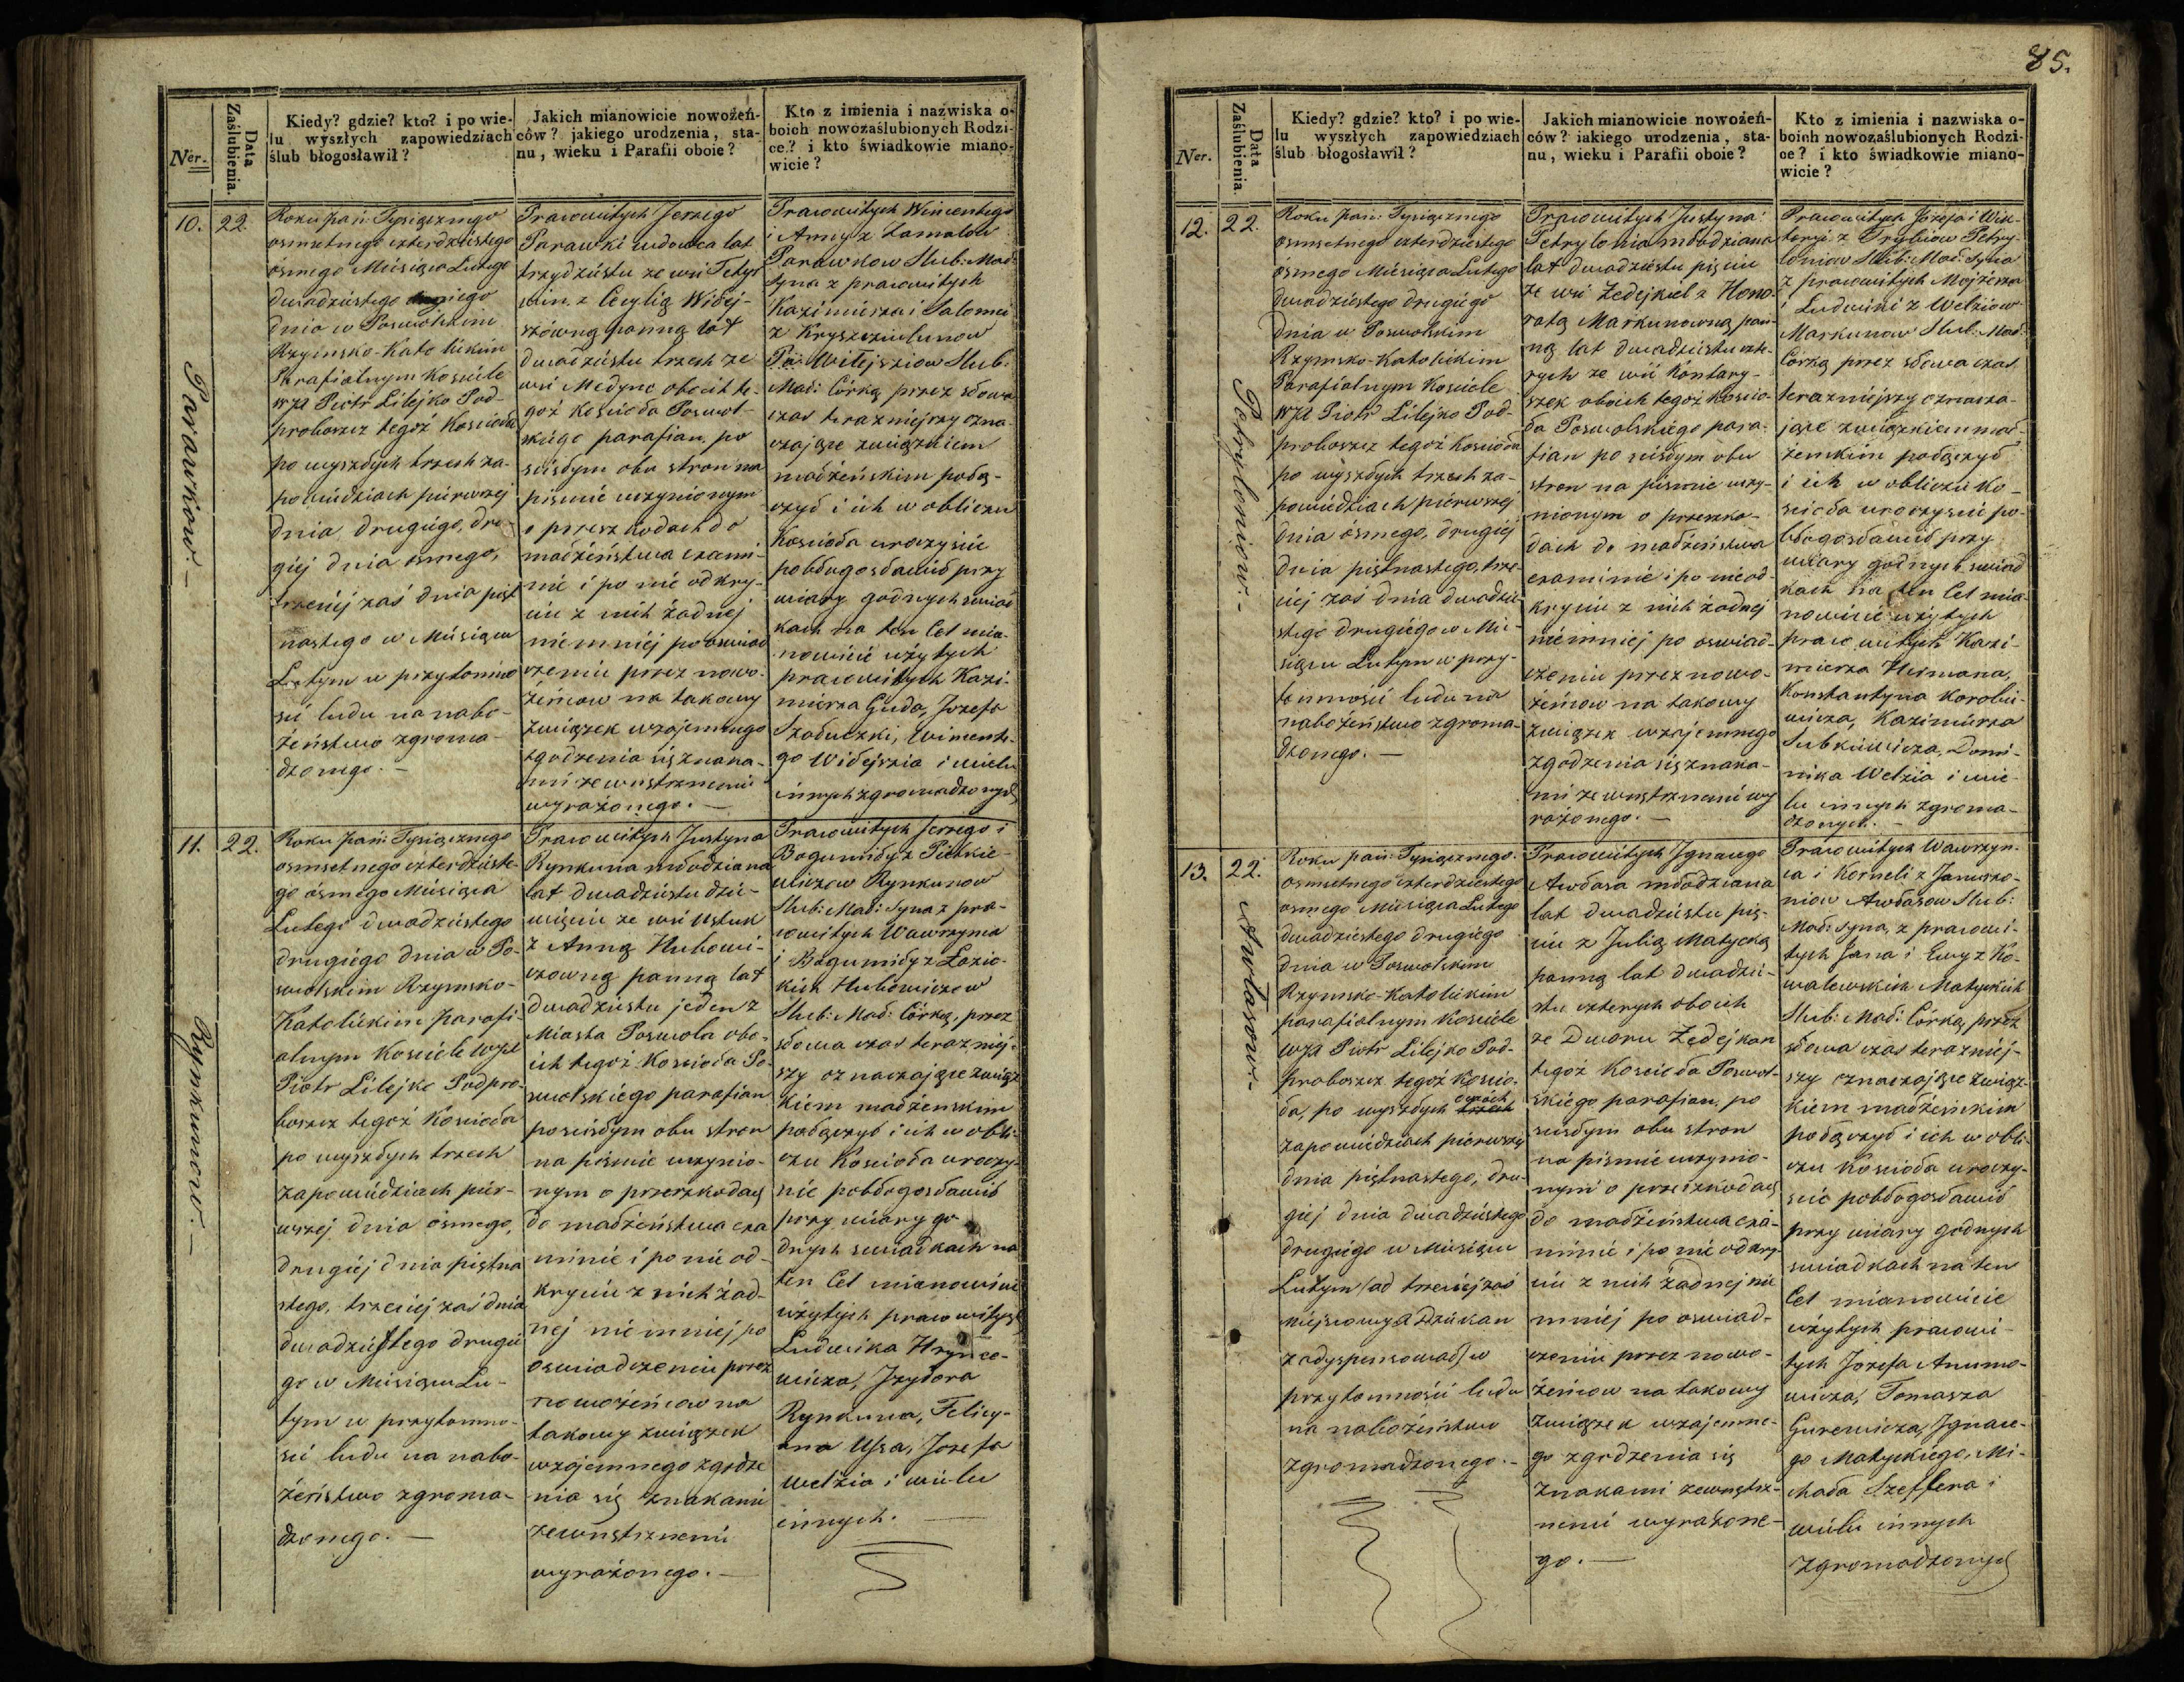 85.
Ner.
Data Zaślubienia.
Kiedy? gdzie? kto? i po wie-
lu wyszłych zapowiedziach
ślub błogosławił?
Jakich mianowicie nowożeń-
ców? jakiego urodzenia, sta-
nu, wieku i Parafii oboie?
Kto z imienia i nazwiska o-
boich nowozaślubionych Rodzi-
ce? i kto świadkowie miano-
wicie?
10.
22.
Parawków.
Roku Pań: Tysiącznego
osmsetnego czterdziéstego
ósmego Miésiąca Lutego
dwadziéstego drugiego
dnia w Poswolskim
Rzymsko-Katolickim
Parafialnym Kościele
WJX Piotr Lilejko Pod-
proboszcz tegoż Kościoła
po wyszłych trzech za-
powiédziach piérwszej
dnia drugiégo, dru-
giéj dnia ósmego,
trzeciéj zaś dnia pięt
nastego w Miésiącu
Lutym w przytomno
ści ludu na nabo-
żeństwo zgroma-
dzonego. —
Prawowitych Jerzego
Parawki wdowca lat
trzydziéstu ze wsi Tetyr
win. z Cecylią Widej-
szówną panną lat
dwadziéstu trzech ze
wsi Medyno oboich te-
goż Kościoła Poswol-
skiégo parafian, po
ścisłym obu stron na
piśmie uczynionym
o przeszkodach do
małżeństwa exami-
nie i po nie odkry-
ciu z nich żadnej
niemniéj po oswiad
czeniu przez nowo-
żeńców na takowy
związek wzajemnego
zgodzenia się znaka-
mi zewnętrznemi
wyrażonego. —
Prawowitych Wincentego
i Anny z Zamalow
Parawkow Slub: Mał:
Syna z prawowitych
Kazimiérza i Salomei
z Kryszcziulunow
Widejsziow Slub:
Mał: Córką przez słowa
czas teraźniéjszy ozna
czające związkiem
małżeńskim połą-
czył i ich w obliczu
Kościoła uroczyście
pobłogosławił przy
wiary godnych świad
kach na ten Cel mia-
nowicie użytych
prawowitych Kazi-
miérza Guda, Jozefa
Szaduczki, Wincente-
go Widejszia i wielu
innych zgromadzonych
11.
22.
Rynkunow.
Roku Pań: Tysiącznego
osmsetnego czterdziéste-
go ósmego Miésiąca
Lutego dwadziéstego
drugiégo dnia w Po-
swolskim Rzymsko-
Katolickim Parafi
alnym Kościéle WJX
Piotr Lilejko Podpro-
boszcz tegoż Kościoła
po wyszłych trzech
zapowiédziach piér-
wszej dnia ósmego,
drugiéj dnia piętna
stego, trzeciéj zaś dnia
dwadziéstego drugié
go w Miésiącu Lu-
tym w przytomno-
ści ludu na nabo-
żeństwo zgroma-
dzonego. —
Prawowitych Justyna
Rynkuna młodziana
lat dwadziéstu dzie-
więciu ze wsi Ustuk
z Anną Hubowi-
czowną panną lat
dwadziéstu jeden z
Miasta Poswola obo-
ich tegoż Kościoła Po-
swolskiégo parafian
po ścisłym obu stron
na piśmie uczynio-
nym o przeszkodach
do małżeństwa exa
minie i po nie od-
kryciu z nich żad-
nej niemniéj po
oswiadczeniu przez
nowożeńców na
takowy związek
wzajemnego zgodze
nia się znakami
zewnętrznemi
wyrażonego. —
Prawowitych Jerzego i
Bogumiły z Pietkie-
wiczow Rynkunow
Slub: Mał: Syna z pra-
wowitych Wawrzyna
i Bogumiły z Łozic-
kich Hubowiczow
Slub: Mał: Córką, przez
słowa czas teraźniéj-
szy oznaczające związ
kiem małżenskim
połączył i ich w obli-
czu Kościoła uroczy-
ście pobłogosławił
przy wiary go
dnych świadkach na
ten Cel mianowicie
użytych prawowitych
Ludwika Hrynce-
wicza, Jzydora
Rynkuna, Felicy-
ana Ussa, Jozefa
Welzia i wielu
innych. —
Ner.
Data Zaślubienia.
Kiedy? gdzie? kto? i po wie-
lu wyszłych zapowiedziach
ślub błogosławił?
Jakich mianowicie nowożeń-
ców? iakiego urodzenia, sta-
nu, wieku i Parafii oboie?
Kto z imienia i nazwiska o-
boich nowozaślubionych Rodzi-
ce? i kto świadkowie miano-
wicie?
12.
22.
Petryloniow.
Roku Pań: Tysiącznego
ósmsetnego czterdziestego
ósmego Miésiąca Lutego
dwadziéstego drugiégo
dnia w Poswolskim
Rzymsko-Katolickim
Parafialnym Kościele
WJX Piotr Lilejko Pod-
proboszcz tegoż Kościoła
po wyszłych trzech za-
powiédziach piérwszej
dnia ósmego, drugiéj
dnia piętnastego, trze-
ciéj zaś dnia dwadzie
stego drugiégo w Mie-
siącu Lutym w przy-
tomności ludu na
nabożeństwo zgroma-
dzonego. —
Prawowitych Justyna
Petrylonia młodziana
lat dwadziestu pięciu
ze wsi Zedejkiel z Hono-
ratą Markunowną pan-
ną lat dwadziéstu czte-
rych ze wsi Kontary-
szek oboich tegoż Koscio-
ła Poswolskiégo para-
fian po ścisłym obu
stron na piśmie uczy-
nionym o przeszko-
dach do małżeństwa
examinie i po nieod-
kryciu z nich żadnej
niémniej po oswiad-
czeniu przez nowo-
żeńcow na takowy
związek wzajemnego
zgodzenia się znaka-
mi zewnętrznemi wy
rażonego. —
Prawowitych Jozefa i Wik-
toryi z Trybiow Petry-
loniow Slub: Mał: Syna
z prawowitych Mojżesza
i Ludwiki z Welziow
Markunow Slub: Mał:
Córką przez słowa czas
teraźniéjszy oznacza-
jące związkiem mał-
żenskim połączył
i ich w obliczu Ko-
ścioła uroczyscie po-
błogosławił przy
wiary godnych świad
kach na ten Cel mia-
nowicie użytych
prawowitych Kazi-
mierza Heimana,
Konstantyna Korobu-
wicza, Kazimiérza
Sutkiéwicza, Domi-
nika Welzia i wie-
lu innych zgroma-
dzonych. —
13.
22.
Awłasow.
Roku pań: Tysiącznego
osmsetnego czterdziestego
osmego Miésiąca Lutego
dwadziestego drugiégo
dnia w Poswolskim
Rzymsko-Katolickim
parafialnym Kościele
WJX Piotr Lilejko Pod-
proboszcz tegoż Koscio-
ła, po wyszłych dwóch trzech
zapowiédziach piérwszej
dnia piętnastego, dru-
giéj dnia dwadziéstego
drugiégo w Miésiącu
Lutym /od trzeciej zaś
miejscowy X Dziekan
zadyspensował/ w
przytomności ludu
na nabożeństwo
zgromadzonego. —
Prawowitych Jgnacego
Awłasa młodziana
lat dwadziéstu pię-
ciu z Julią Matycką
panną lat dwadzie-
stu czterych oboich
ze Dworu Zedejkan
tegoż Kościoła Poswol-
skiégo parafian, po
ścisłym obu stron
na piśmie uczynio-
nym o przeszkodach
do małżeństwa exa-
minie i po nie odkry-
ciu z nich żadnej nie
mniéj po oswiad-
czeniu przez nowo-
żeńcow na takowy
związek wzajemne-
go zgodzenia się
znakami zewnętrz-
nemi wyrażone-
go. —
Prawowitych Wawrzyn-
ca i Korneli z Januszo-
niow Awłasow Slub:
Mał: Syna, z prawowi-
tych Jana i Ewy z Ko-
walewskich Matyckich
Slub: Mał: Córką, przez
słowa czas teraźniéj-
szy oznaczające związ-
kiem małżeńskim
połączył i ich w obli-
czu Kościoła uroczy-
ście pobłogosławił
przy wiary godnych
świadkach na ten
Cel mianowicie
użytych prawowi-
tych Jozefa Anumo-
wicza, Tomasza
Gurewicza, Jgnace-
go Matyckiégo, Mi-
chała Szeffera i
wielu innych
zgromadzonych